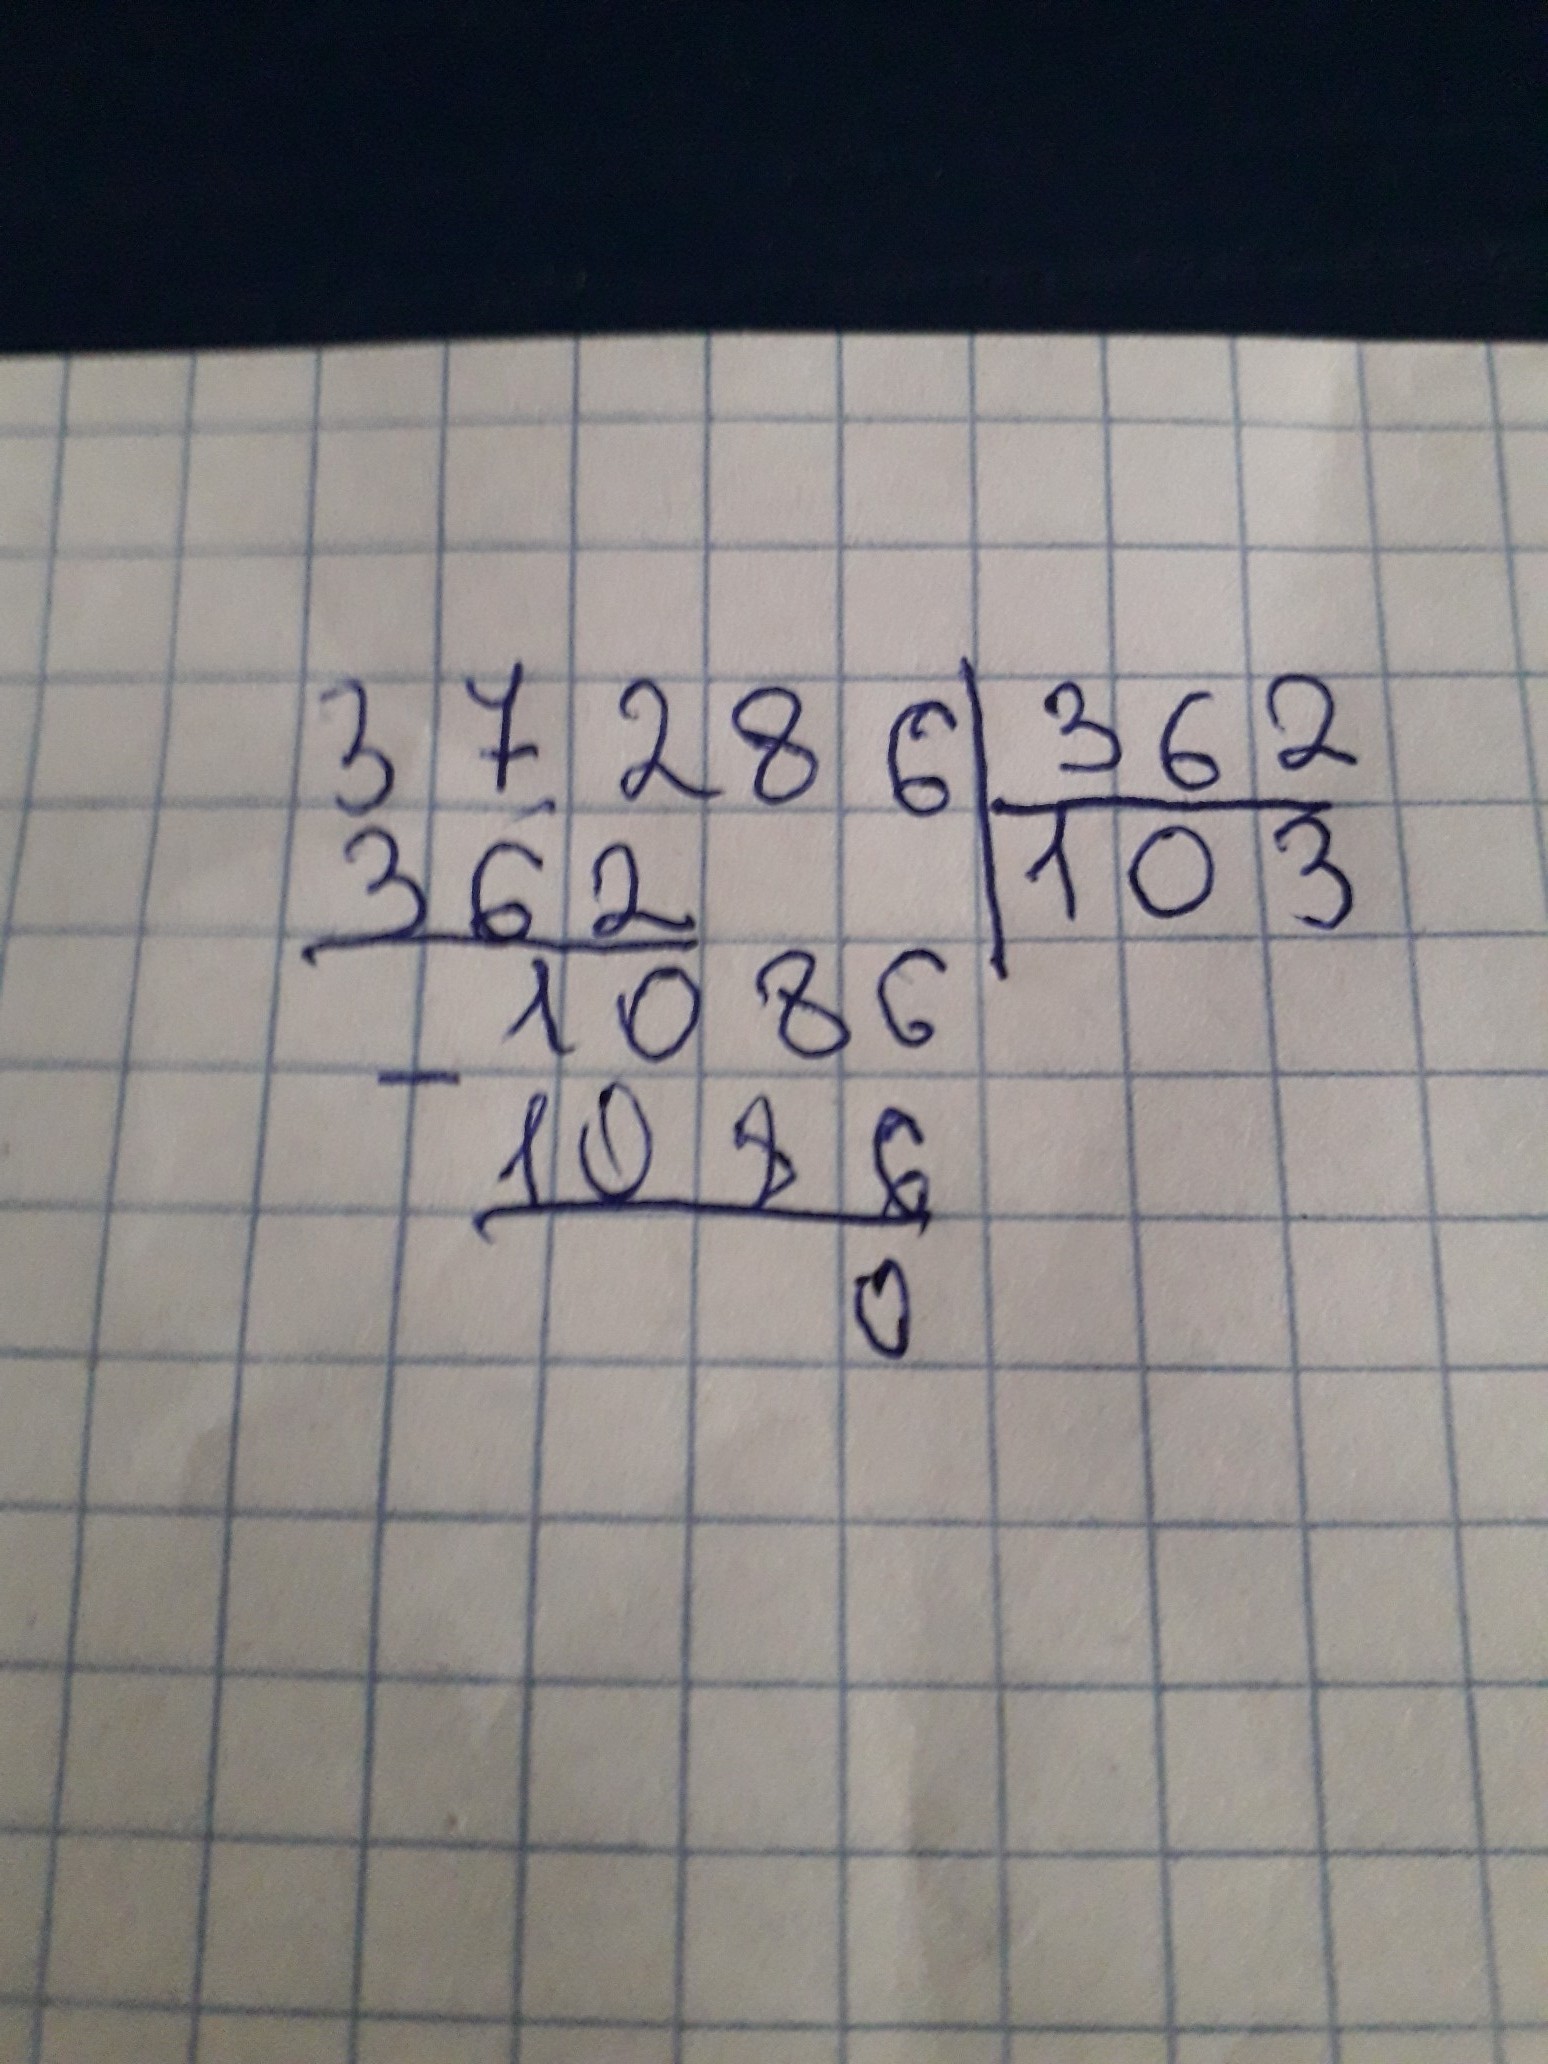 37286 362
362 103
1086
-
1086
0